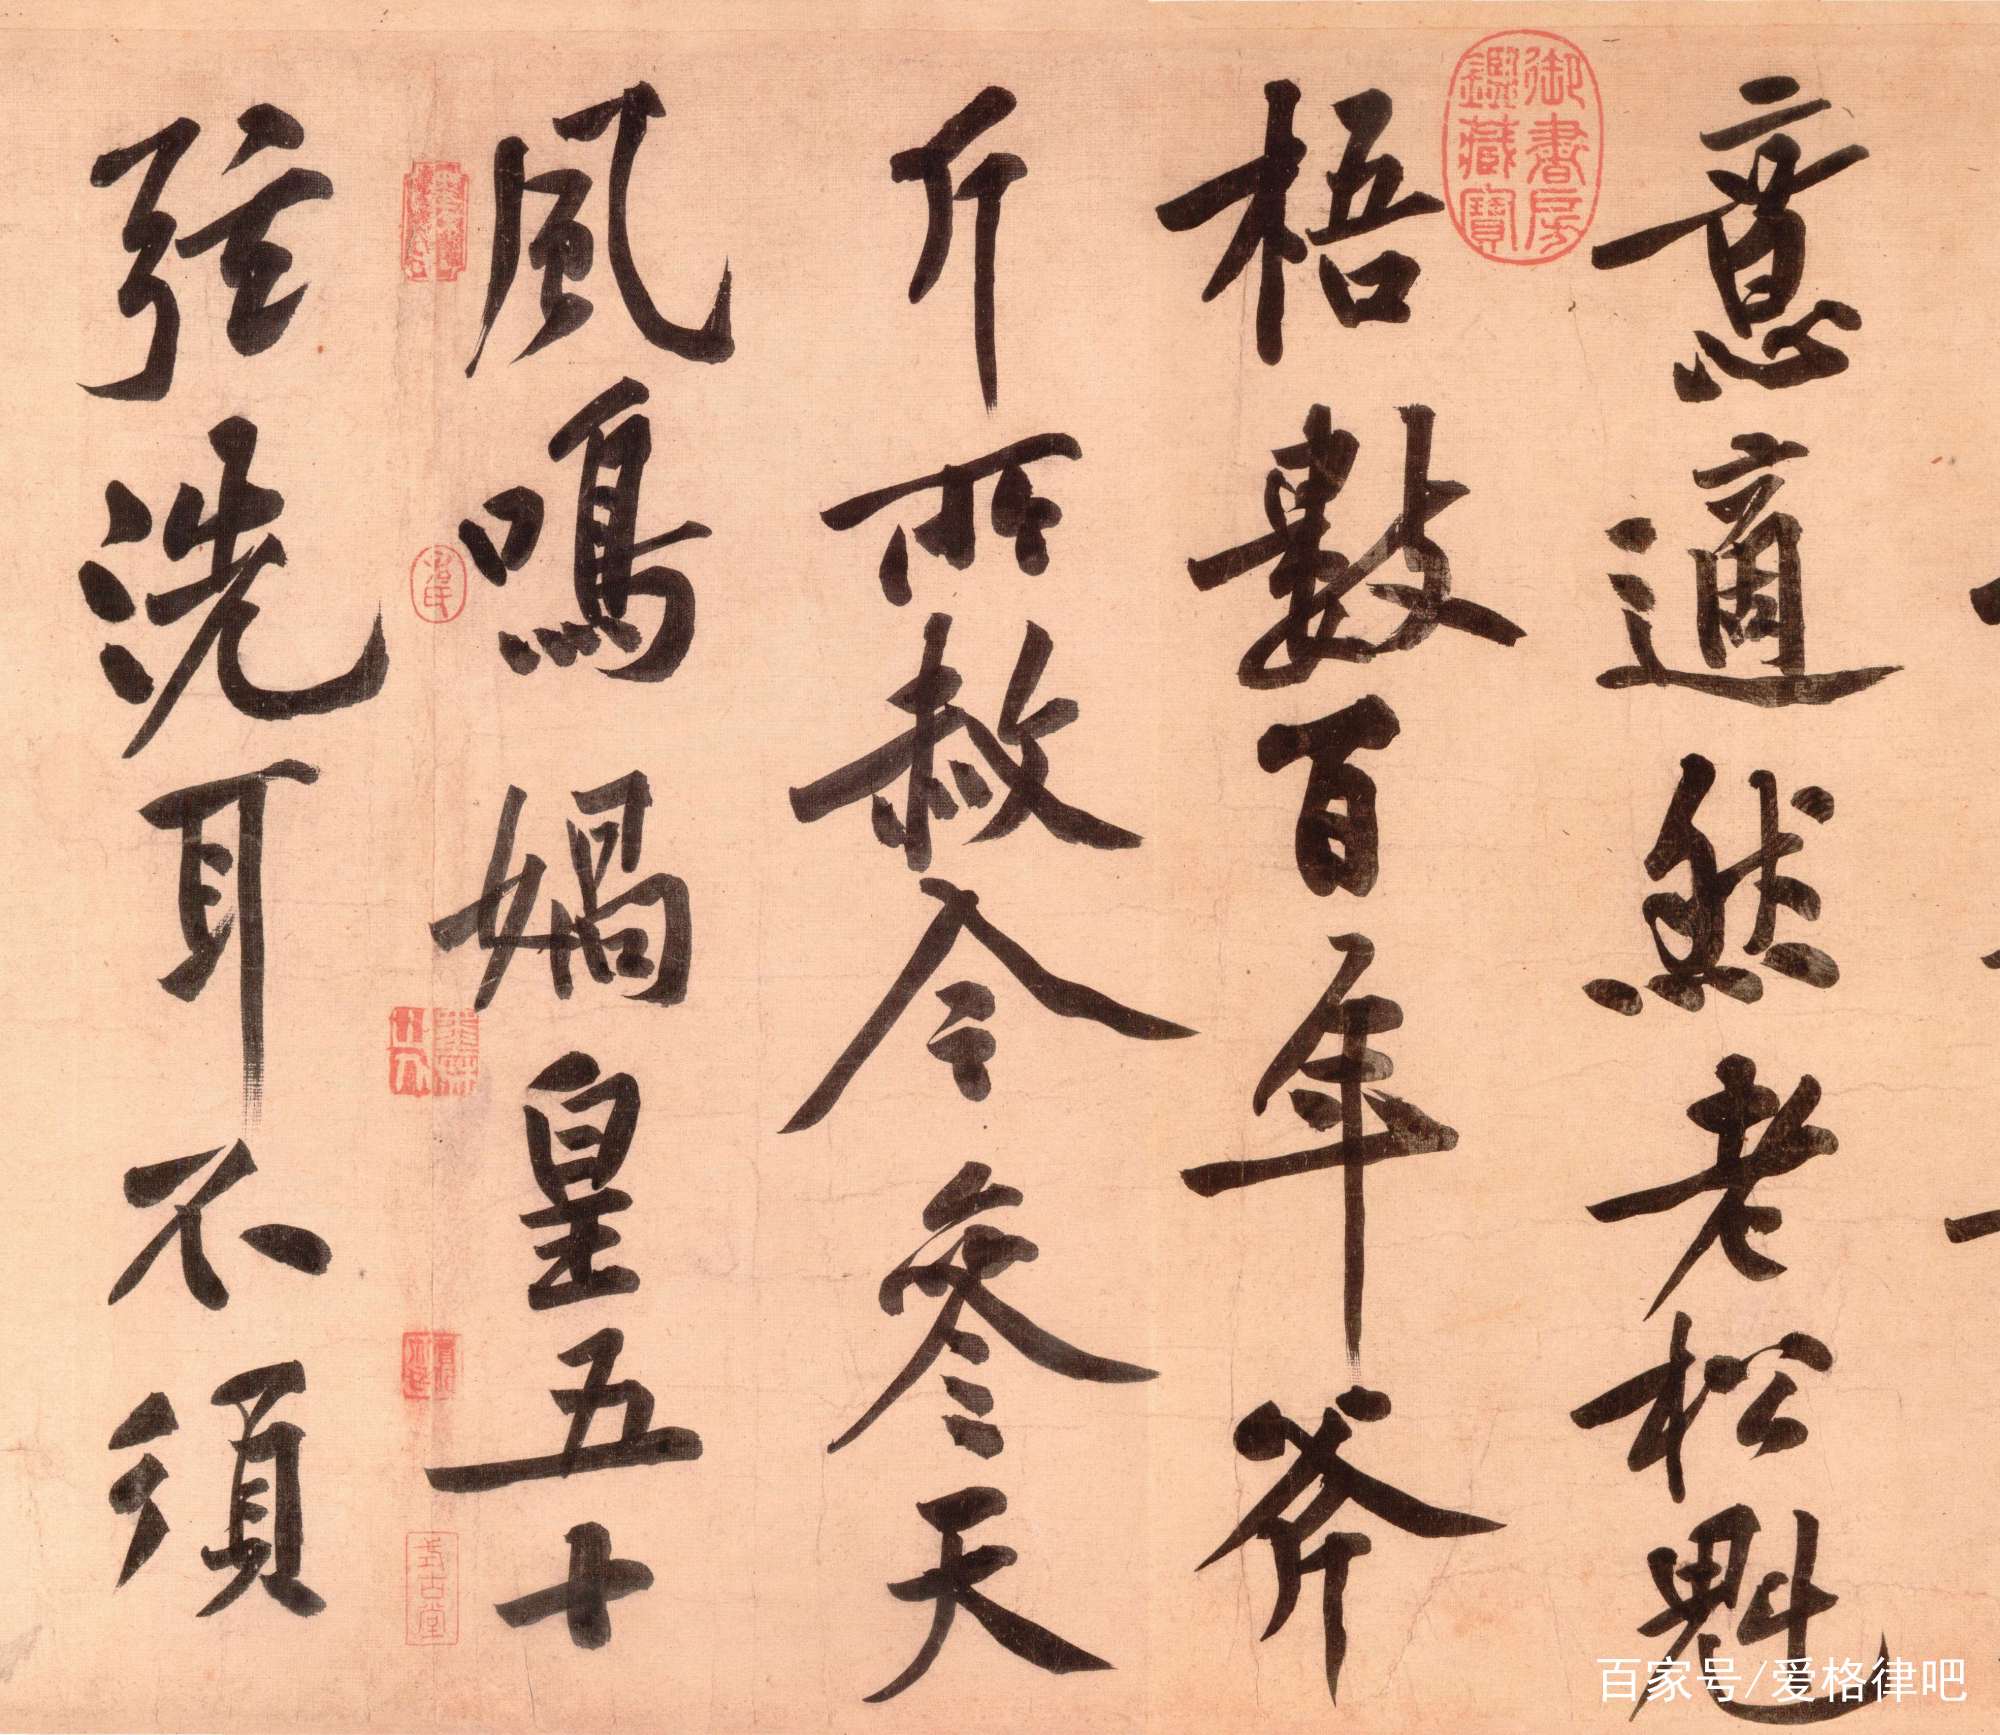 意適然老松魁
梧數百年斧
斤所赦今參天
風鳴媧皇五十
弦洗耳不須
御書房
鑑藏寶
式古堂
百家号/爱格律吧